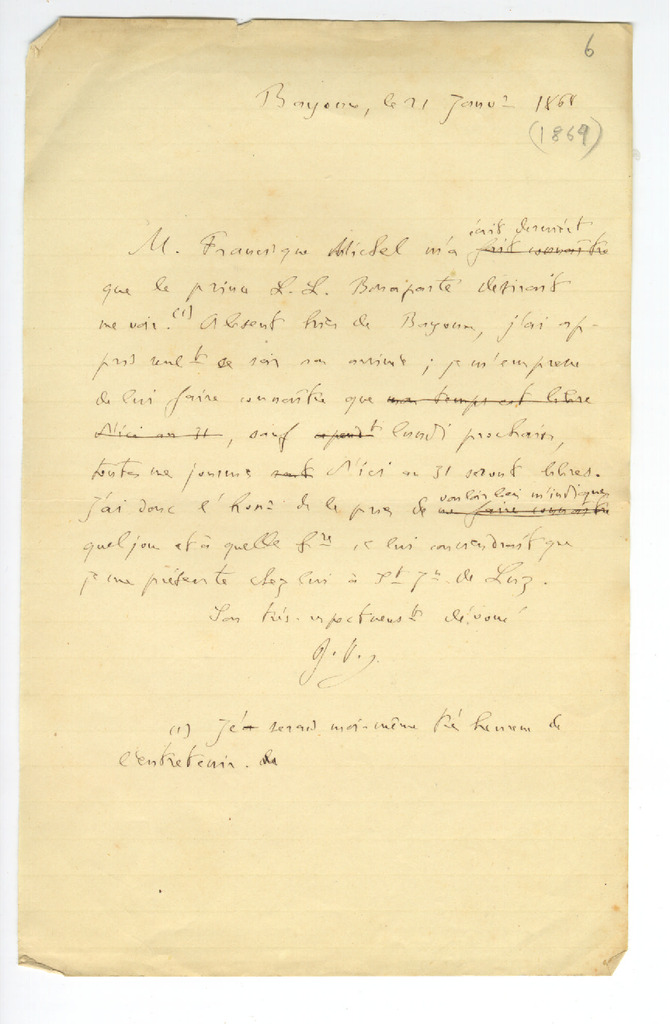 6
Bayonne, le 21 Janvr 1868
(1869)
écrit
M. Francisque Michel m'a fait connaître
que le prince L. L. Bonaparte désirait
me voir.(1) Absent hier de Bayonne, j'ai ap-
pris seult ce soir son arrivée ; je m'empresse
de lui faire connaître que mon temps est libre
d'ici au 31, sauf lundi prochain,
toutes mes journées sont d'ici au 31 seront libres.
vouloir bien m'indiquer
J'ai donc l'honr de le prier de me faire connaître
quel jour et à quelle hre il lui conviendrait que
je me présente chez lui à St Jn de Luz.
Son très-respectueust dévoué
J. V.
(1) Je serais moi-même très heureux de
l'entretenir. de